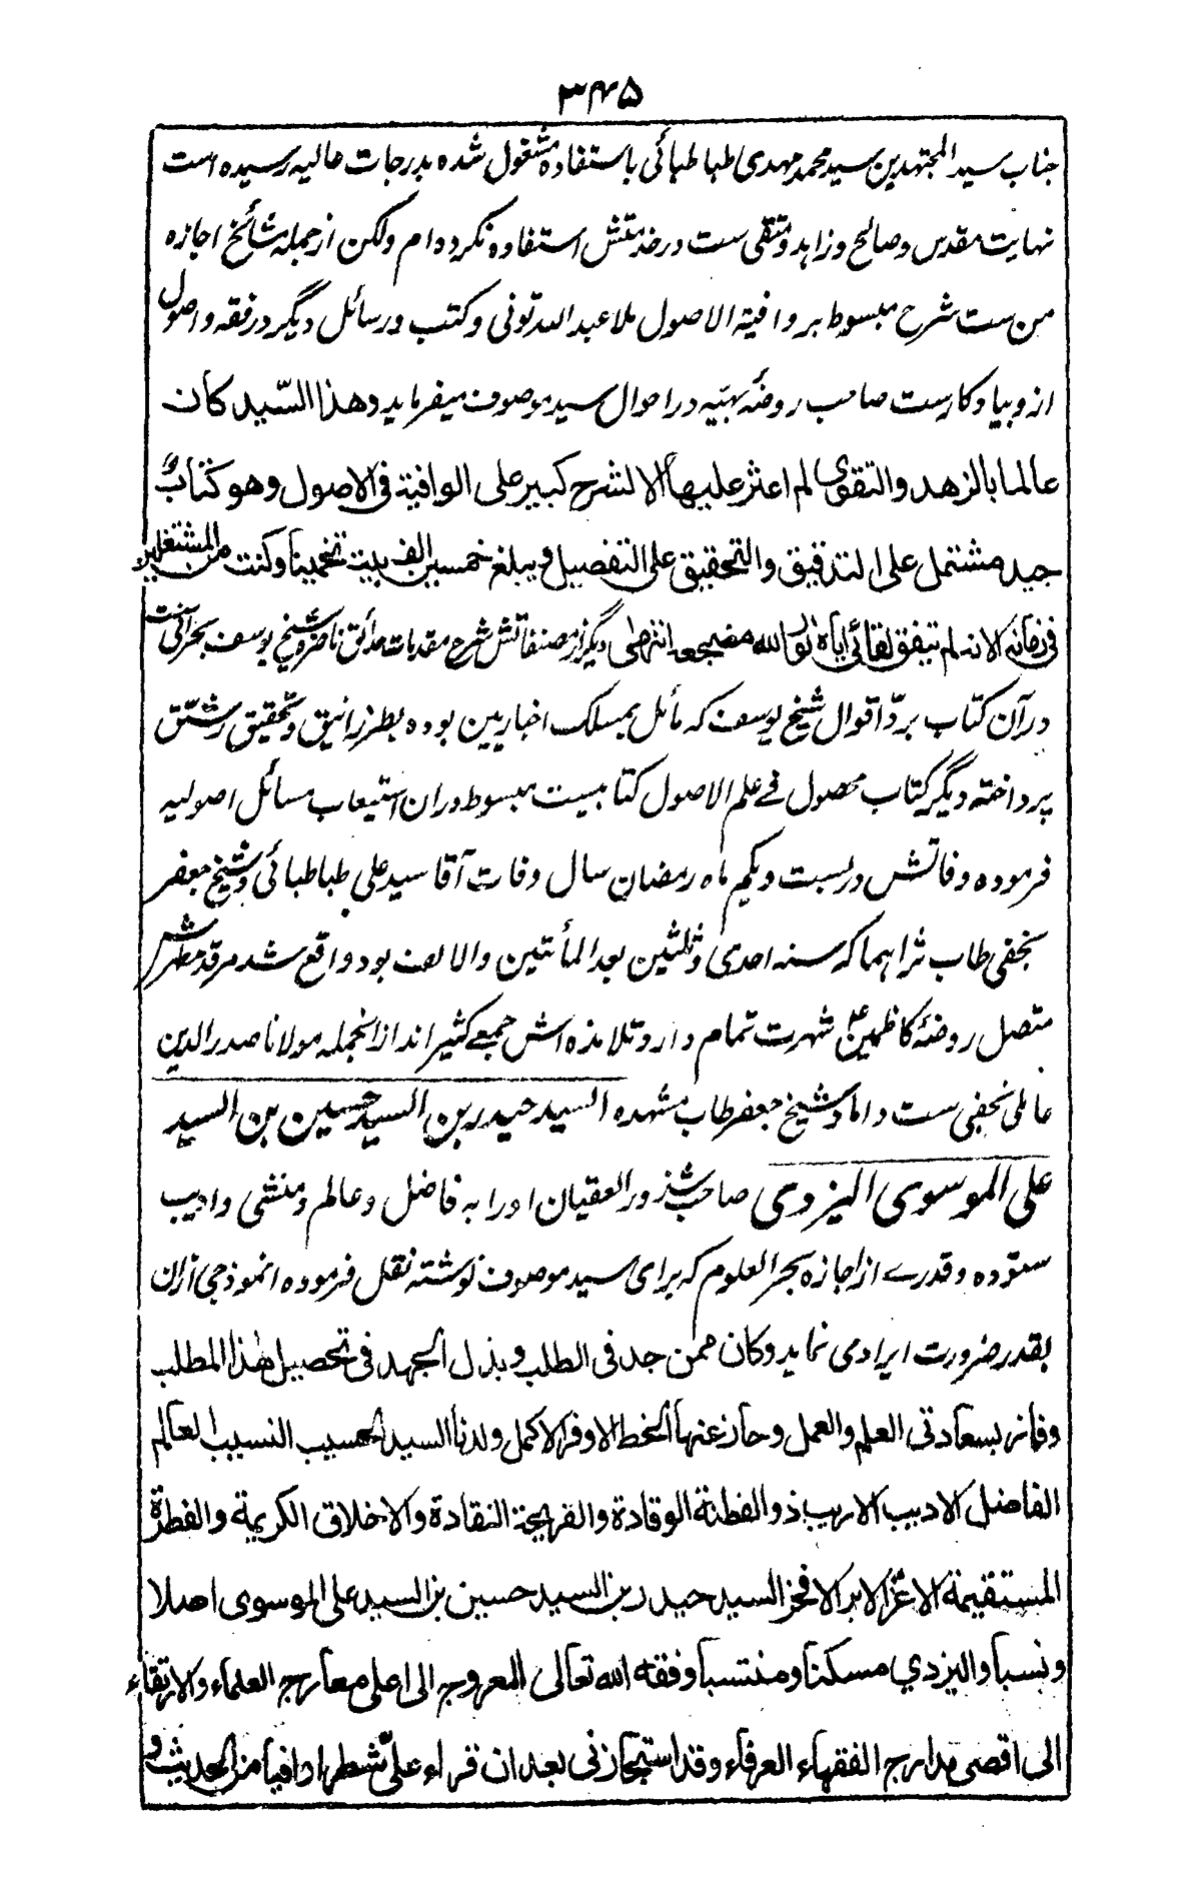 ۳۴۵
جناب سید المجتهدین سید محمد مهدی طباطبائی باستفاده مشغول شده بدرجات عالیه رسیده است
نهایت مقدس و صالح و زاهد و متقی ست در خدمتش استفاده نکرده ام ولکن از جمله مشائخ اجازه
من ست شرح مبسوط بر وافیة الاصول ملا عبد الله تونی و کتب و رسائل دیگر در فقه و اصول
ازو بیادگارست صاحب روضهٔ بهیّه در احوال سید موصوف میفرماید و هذا السّید کان
عالما بالزهد والتقوی لم اعثر علیها الا لشرح کبیر علی الوافیة فی الاصول وهو کتاب
جید مشتمل علی التدقیق والتحقیق علی التفصیل و یبلغ خمسین الف بیت تخمینا وکنت من المشتغلین
فی زمانه الا انه لم تیفق لقائی ایاه نور الله مضجعه انتهی دیگر از مصنفاتش شرح مقدمات حدائق ناضره شیخ یوسف بحرانی ست
در آن کتاب بردّ اقوال شیخ یوسف که مائل بمسلک اخباریین بوده بطرز انیق و تحقیق رشیق
پرداخته دیگر کتاب محصول فے علم الاصول کتابیست مبسوط دران استیعاب مسائل اصولیه
فرموده وفاتش در بست و یکم ماه رمضان سال وفات آقا سید علی طباطبائی و شیخ جعفر
نجفی طاب ثراهما که سنه احدی و ثلثین بعد المأتین والالف بود واقع شد مرقد مطهرش
متصل روضهٔ کاظمین ع شهرت تمام دارد تلامذه اش جمعے کثیر اند از انجمله مولانا صدر الدین
عاملی نجفی ست داماد شیخ جعفر طاب مشهده السید حیدر بن السید حسین بن السید
علی الموسوی الیزدی صاحب شذور العقیان او را به فاضل و عالم و منشی و ادیب
ستوده و قدرے از اجازه بحر العلوم که برای سید موصوف نوشته نقل فرموده انموذجی ازان
بقدر ضرورت ایرادمی نماید وکان ممن جد فی الطلب و بذل الجهد فی تحصیل هذا المطلب
وفاز بسعادتی العلم والعمل وحاز عنها الحظ الاوفر الاکمل ولدنا السید الحسیب النسیب العالم
الفاضل الادیب الاریب ذو الفطنة الوقادة والقریحة النقادة والاخلاق الکریمة والفطرة
المستقیمة الاعزّ الابر الافخر السید حیدر بن السید حسین بن السید علی الموسوی اصلا
ونسبا والیزدي مسکنا ومنتسبا وفقه الله تعالی للعروج الی اعلی معارج العلماء والارتقاء
الی اقصی مدارج الفقهاء العرفاء وقد استجازنی بعد ان قراء علیّ شطرا وافیا من الحدیث و